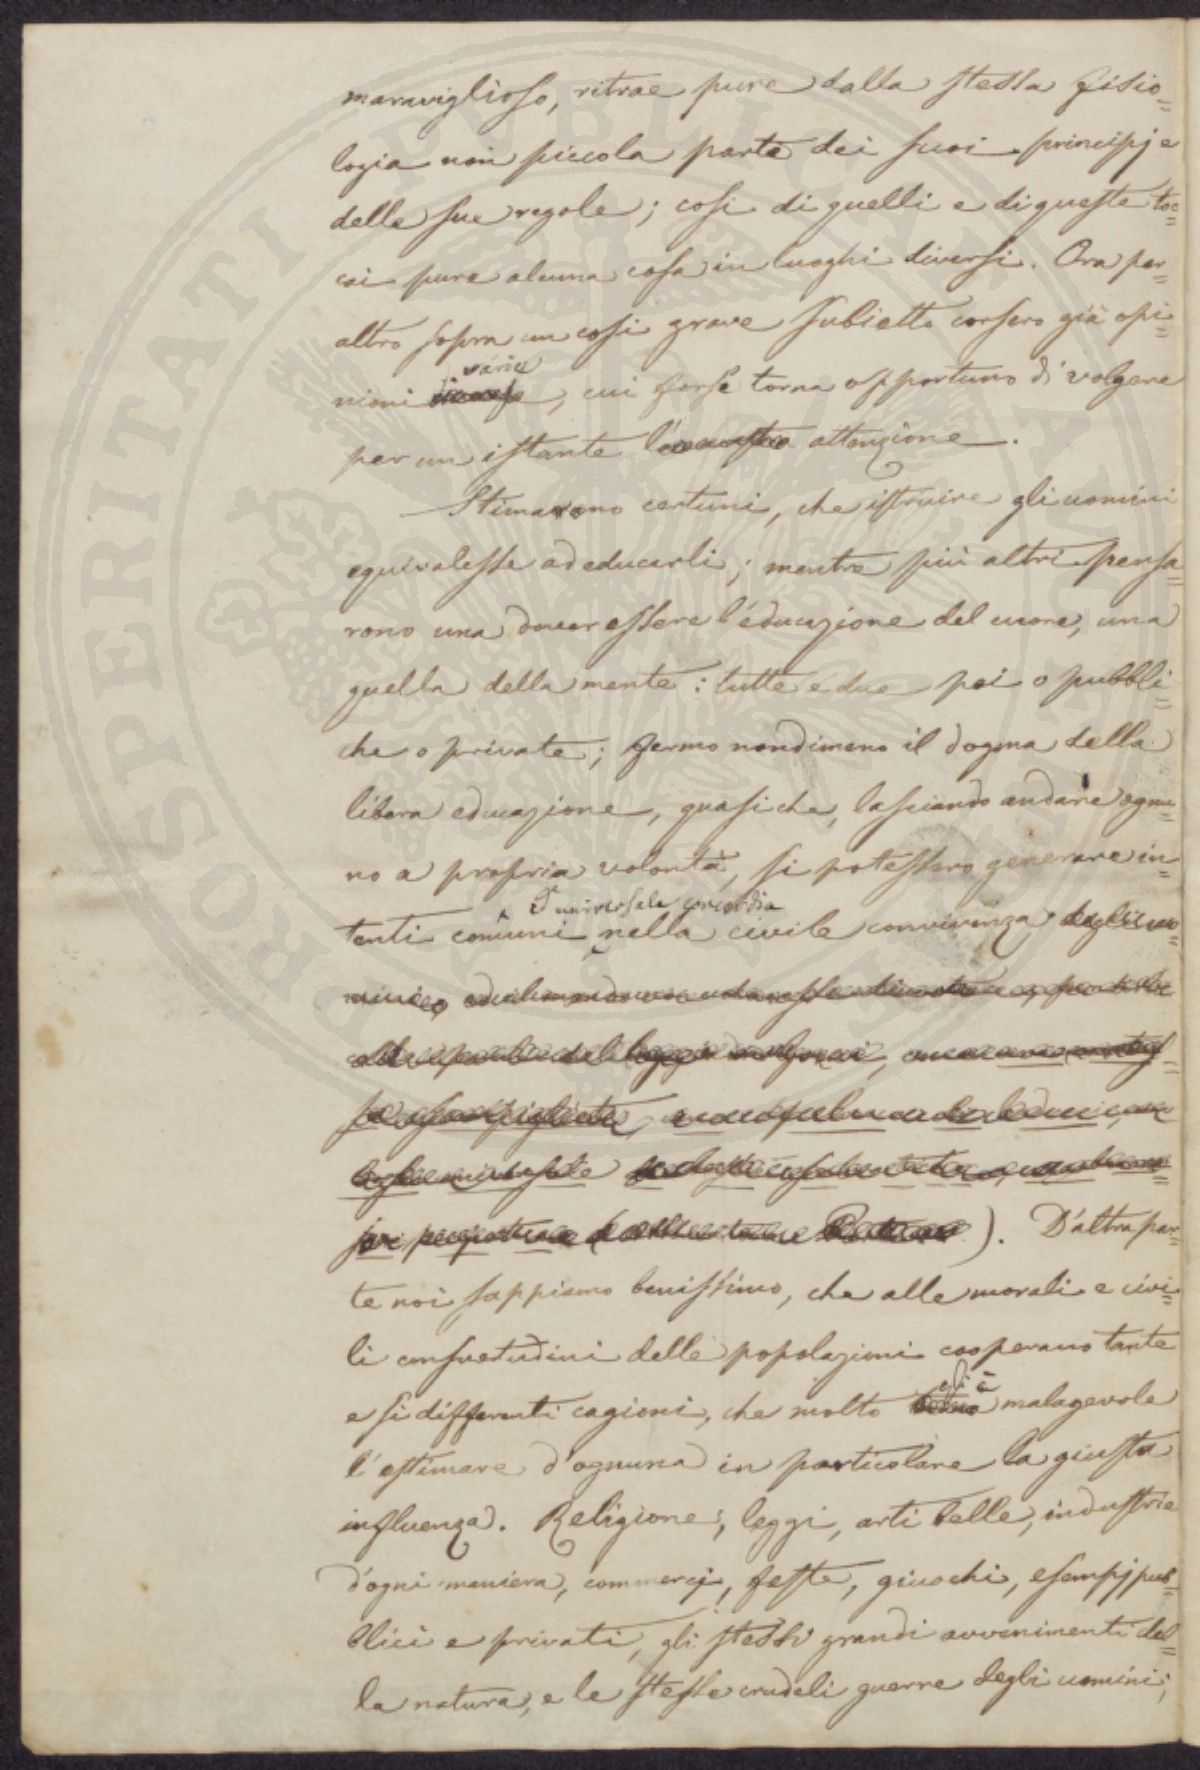 maraviglioso, ritrae pure dalla stessa Fisio=
logia non piccola parte dei suoi principj e
delle sue regole; così di quelli e di queste toc=
cai pure alcuna cosa in luoghi diversi. Ora per=
altro sopra un così grave subietto corsero già opi=
varie
nioni diverse, cui forse torna opportuno di volgere
per un istante l' attenzione.
Stimarono certuni, che istruire gli uomini
equivalesse ad educarli; mentre più altri pensa=
rono una dover essere l'educazione del cuore, una
quella della mente: tutte e due poi o pubbli=
che o private; fermo nondimeno il dogma della
libera educazione, quasi che, lasciando andare ognu=
no a propria volontà, si potessero generare in=
e universale concordia
tenti comuni nella civile convivenza degli uo=
mini
). D'altra par=
te noi sappiamo benissimo, che alle morali e civi=
li consuetudini delle popolazioni cooperano tante
egli è
e sì differenti cagioni, che molto torna malagevole
l'estimare d'ognuna in particolare la giusta
influenza. Religione, leggi, arti belle, industrie
d'ogni maniera, commercj, feste, giuochi, esempj pub=
blici e privati, gli stessi grandi avvenimenti del=
la natura, e le stesse crudeli guerre degli uomini;
PROSPERITATI PUBLICAE AUGENDAE